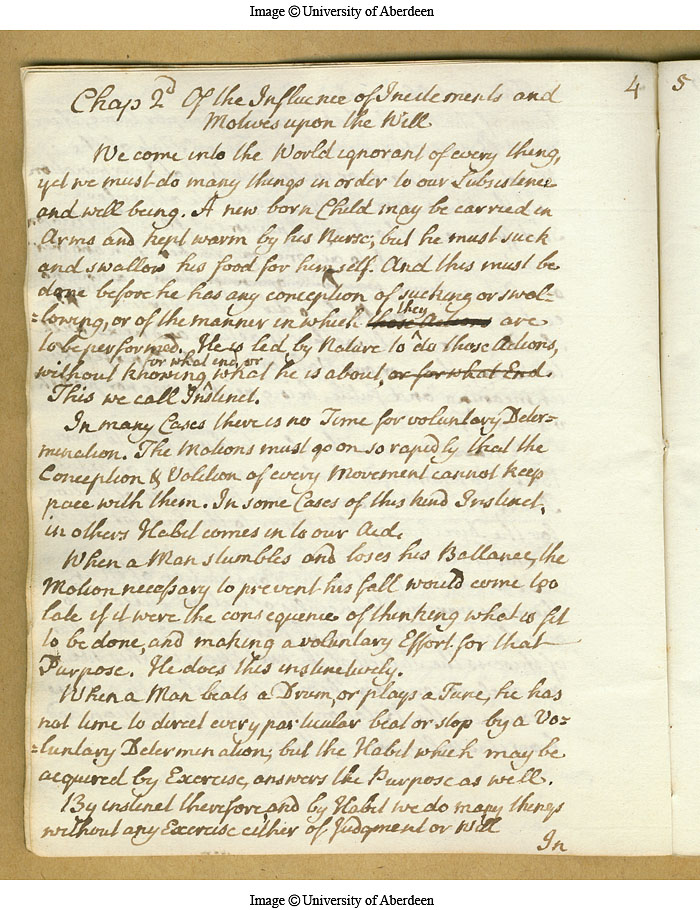 Image © University of Aberdeen
4 5
Chap 2d Of the Influence of Incitements and
Motives upon the Will
We come into the World ignorant of every thing,
yet we must do many things in order to our Subsistence
and well being. A new born Child may be carried in
Arms and kept warm by his Nurse; but he must suck
and swallow his food for himself. And this must be
done before he has any conception of sucking or swal-
=lowing, or of the manner in which they those Actions are
to be performed. He is led by Nature to do those Actions,
without knowing for what end, or what he is about, or for what End.
This we call Instinct.
In many Cases there is no Time for voluntary Deter-
mination. The Motions must go on so rapidly that the
Conception & Volition of every Movement cannot keep
pace with them. In some Cases of this kind Instinct,
in others Habit comes in to our Aid.
When a Man stumbles and loses his Ballance, the
Motion necessary to prevent his fall would come too
late if it were the consequence of thinking what is fit
to be done, and making a voluntary Effort for that
Purpose. He does this instinctively.
When a Man beats a Drum, or plays a Tune, he has
not time to direct every particular beat or stop by a Vo=
=luntary Determination; but the Habit which may be
acquired by Exercise, answers the Purpose as well.
By instinct therefore, and by Habit we do many things
without any Exercise either of Judgment or Will
In
Image © University of Aberdeen